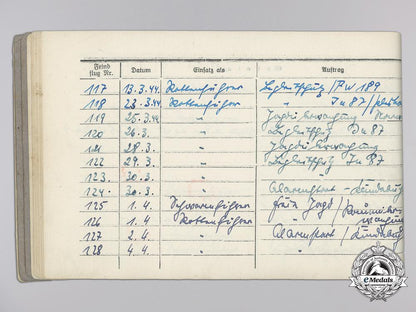 Feind
flug Nr. Datum Einsatz als Auftrag
117 13.3.44. Rottenführer Begleitschutz / FW 189
118 23.3.44. Rottenführer " Ju 87 /
119 25.3.44 " Jagdüberwachung
120 26.3. " Begleitschutz Ju 87
121 28.3. " Jagdüberwachung
122 29.3. " Begleitschutz Ju 87
123. 30.3. "
124. 30.3. " Alarmstart -
125 1.4. Schwarmführer freie Jagd /
126 1.4. Rottenführer "
127 2.4. " Alarmstart /
128 4.4. " "
eMedals
emedals.com